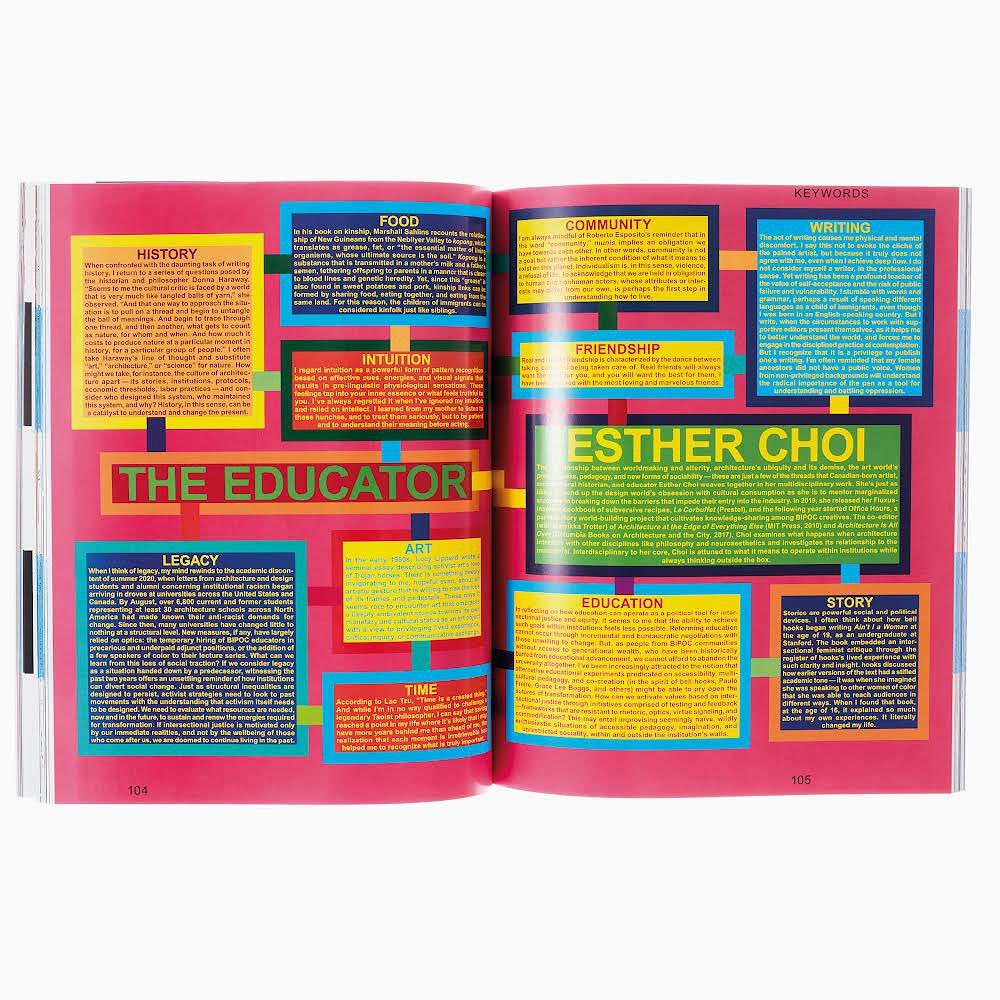 KEYWORDS
HISTORY
When confronted with the daunting task of writing
history, I return to a series of questions posed by
the historian and philosopher Donna Haraway.
"Seems to me the cultural critic is faced by a world
that is very much like tangled balls of yarn," she
observed. "And that one way to approach the situ-
ation is to pull on a thread and begin to untangle
the ball of meanings. And begin to trace through
one thread, and then another, what gets to count
as nature, for whom and when. And how much it
costs to produce nature at a particular moment in
history, for a particular group of people." I often
take Haraway's line of thought and substitute
"art," "architecture," or "science" for nature. How
might we take, for instance, the culture of architec-
ture apart — its stories, institutions, protocols,
economic thresholds, labor practices — and con-
sider who designed this system, who maintained
this system, and why? History, in this sense, can be
a catalyst to understand and change the present.
FOOD
In his book on kinship, Marshall Sahlins recounts the relation-
ship of New Guineans from the Nebilyer Valley to kopong, which
translates as grease, fat, or "the essential matter of living
organisms, whose ultimate source is the soil." Kopong is a
substance that is transmitted in a mother's milk and a father's
semen, tethering offspring to parents in a manner that is close
to blood lines and genetic heredity. Yet, since this "grease" is
also found in sweet potatoes and pork, kinship links can be
formed by sharing food, eating together, and eating from the
same land. For this reason, the children of immigrants can be
considered kinfolk just like siblings.
INTUITION
I regard intuition as a powerful form of pattern recognition
based on affective cues, energies, and visual signals that
results in pre-linguistic physiological sensations. These
feelings tap into your inner essence or what feels truthful to
you. I've always regretted it when I've ignored my intuition
and relied on intellect. I learned from my mother to listen to
these hunches, and to treat them seriously, but to be patient
and to understand their meaning before acting.
THE EDUCATOR
LEGACY
When I think of legacy, my mind rewinds to the academic discon-
tent of summer 2020, when letters from architecture and design
students and alumni concerning institutional racism began
arriving in droves at universities across the United States and
Canada. By August, over 6,800 current and former students
representing at least 30 architecture schools across North
America had made known their anti-racist demands for
change. Since then, many universities have changed little to
nothing at a structural level. New measures, if any, have largely
relied on optics: the temporary hiring of BIPOC educators in
precarious and underpaid adjunct positions, or the addition of
a few speakers of color to their lecture series. What can we
learn from this loss of social traction? If we consider legacy
as a situation handed down by a predecessor, witnessing the
past two years offers an unsettling reminder of how institutions
can divert social change. Just as structural inequalities are
designed to persist, activist strategies need to look to past
movements with the understanding that activism itself needs
to be designed. We need to evaluate what resources are needed,
now and in the future, to sustain and renew the energies required
for intersectional justice. If intersectional justice is motivated only
by our immediate realities, and not by the wellbeing of those
who come after us, we are doomed to continue living in the past.
ART
In the early 1980s, Lucy Lippard wrote a
seminal essay describing activist art's love
of Trojan horses. There is something
invigorating to me, hopeful even, about an
artistic gesture that is willing to
of its frames and pedestals. These days it
seems rare to encounter art that embraces
a deeply ambivalent stance towards its own
monetary and cultural status as an art object
with a view to privileging lived experience,
critical inquiry, or communicative exchange.
TIME
According to Lao Tzu, "Time is a created thing,"
and while I'm in no way qualified to challenge a
legendary Taoist philosopher, I can say that having
reached a point in my life where it's likely that I may
have more years behind me than ahead of me, the
realization that each moment is irretrievable has
helped me to recognize what is truly important.
104
COMMUNITY
I am always mindful of Roberto Esposito's reminder that in
the word "community," munis implies an obligation we
have towards each other. In other words, community is not
a goal but rather the inherent condition of what it means to
exist on this planet. Individualism is, in this sense, violence,
a refusal to acknowledge that we are held in obligation
to human and nonhuman actors, whose attributes or inter-
ests may differ from our own, is perhaps the first step in
understanding how to live.
WRITING
The act of writing causes me physical and mental
discomfort. I say this not to evoke the cliché of
the pained artist, but because it truly does not
agree with me, even when I achieve deep flow. I do
not consider myself a writer, in the professional
sense. Yet writing has been a profound teacher of
the value of self-acceptance and the risk of public
failure and vulnerability. I stumble with words and
grammar, perhaps a result of speaking different
languages as a child of immigrants, even though
I was born in an English-speaking country. But I
write, when the circumstances to work with sup-
portive editors present themselves, as it helps me
to better understand the world, and forces me to
engage in the disciplined practice of contemplation.
But I recognize that it is a privilege to publish
one's writing. I'm often reminded that my female
ancestors did not have a public voice. Women
from non-privileged backgrounds will understand
the radical importance of the pen as a tool for
understanding and battling oppression.
FRIENDSHIP
Real and friendship is characterized by the dance between
taking care and being taken care of. Real friends will always
want the for you, and you will want the best for them. I
have been blessed with the most loving and marvelous friends.
ESTHER CHOI
The relationship between worldmaking and alterity, architecture's ubiquity and its demise, the art world's
pedagogy, and new forms of sociability — these are just a few of the threads that Canadian-born artist,
architectural historian, and educator Esther Choi weaves together in her multidisciplinary work. She's just as
likely to end up the design world's obsession with cultural consumption as she is to mentor marginalized
to breaking down the barriers that impede their entry into the industry. In 2019, she released her Fluxus-
cookbook of subversive recipes, Le Corbuffet (Prestel), and the following year started Office Hours, a
participatory world-building project that cultivates knowledge-sharing among BIPOC creatives. The co-editor
(with Marrikka Trotter) of Architecture at the Edge of Everything Else (MIT Press, 2010) and Architecture Is All
Over (Columbia Books on Architecture and the City, 2017), Choi examines what happens when architecture
intersects with other disciplines like philosophy and neuroaesthetics and investigates its relationship to the
Interdisciplinary to her core, Choi is attuned to what it means to operate within institutions while
always thinking outside the box.
EDUCATION
In reflecting on how education can operate as a political tool for inter-
sectional justice and equity, it seems to me that the ability to achieve
such goals within institutions feels less possible. Reforming education
cannot occur through incremental and bureaucratic negotiations with
those unwilling to change. But, as people from BIPOC communities
without access to generational wealth, who have been historically
barred from educational advancement, we cannot afford to abandon the
university altogether. I've been increasingly attracted to the notion that
alternative educational experiments predicated on accessibility, multi-
cultural pedagogy, and co-creation (in the spirit of bell hooks, Paulo
Freire, Grace Lee Boggs, and others) might be able to pry open the
sutures of transformation. How can we activate values of intersec-
tional justice through initiatives comprised of testing and feedback
— frameworks that are resistant to rhetoric, optics, virtue signaling, and
commodification? This may entail improvising seemingly naive, wildly
enthusiastic situations of accessible pedagogy, imagination, and
unrestricted sociality, within and outside the institution's walls.
STORY
Stories are powerful social and political
devices. I often think about how bell
hooks began writing Ain't I a Woman at
the age of 19, as an undergraduate at
Stanford. The book embedded an inter-
sectional feminist critique through the
register of hooks's lived experience with
such clarity and insight. hooks discussed
how earlier versions of the text had a stilted
academic tone — it was when she imagined
she was speaking to other women of color
that she was able to reach audiences in
different ways. When I found that book,
at the age of 16, it explained so much
about my own experiences. It literally
changed my life.
105